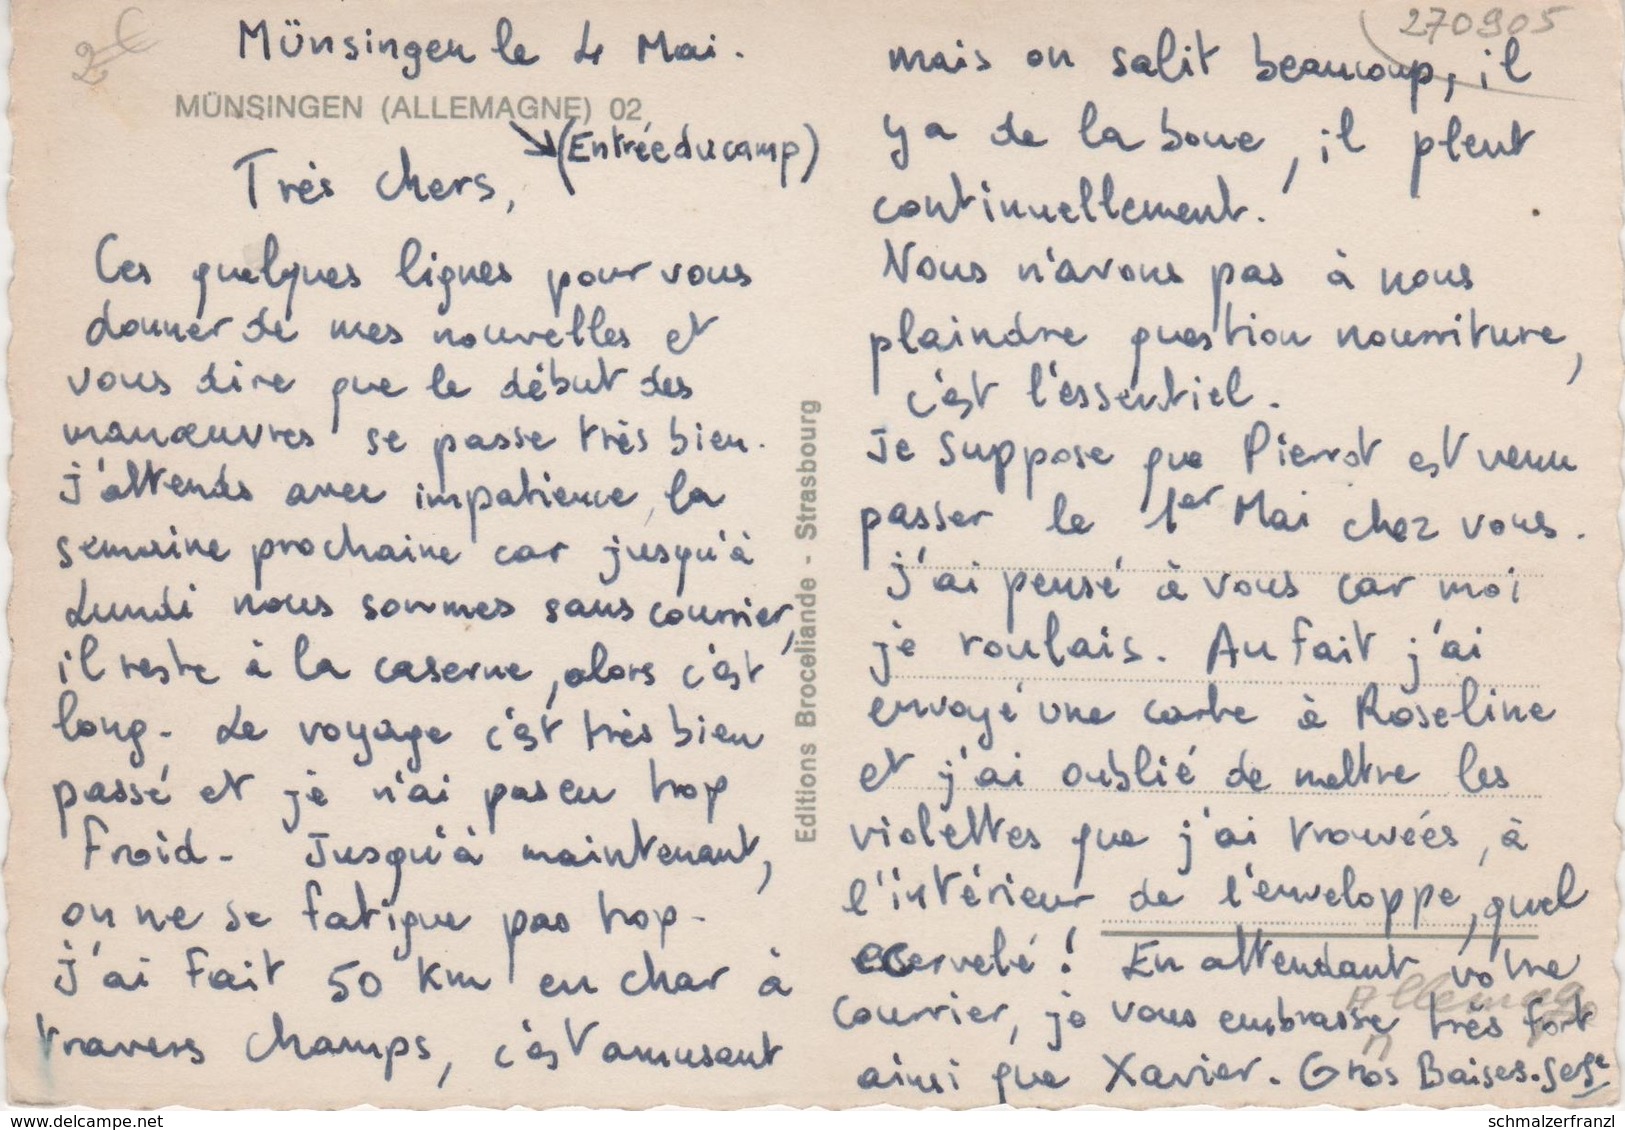 270905
Münsingen le 4 Mai.
MÜNSINGEN (ALLEMAGNE) 02
(Entrée du camp)
Très chers,
Ces quelques lignes pour vous
donner de mes nouvelles et
vous dire que le début des
manœuvres se passe très bien.
J'attends avec impatience, la
semaine prochaine car jusqu'à
Lundi nous sommes sans courrier,
il reste à la caserne, alors c'est
long. Le voyage c'est très bien
passé et je n'ai pas eu trop
froid. Jusqu'à maintenant,
on ne se fatigue pas trop.
J'ai fait 50 Km en char à
travers champs, c'est amusant
Editions Broceliande - Strasbourg
mais on salit beaucoup, il
y a de la boue, il pleut
continuellement.
Nous n'avons pas à nous
plaindre question nourriture,
c'est l'essentiel.
Je suppose que Pierrot est venu
passer le 1er Mai chez vous.
J'ai pensé à vous car moi
je roulais. Au fait j'ai
envoyé une carte à Roseline
et j'ai oublié de mettre les
violettes que j'ai trouvées, à
l'intérieur de l'enveloppe, quel
ecervelé ! En attendant votre
courrier, je vous embrasse très fort
ainsi que Xavier. Gros Baises. Serge
delcampe.net
schmalzerfranzl